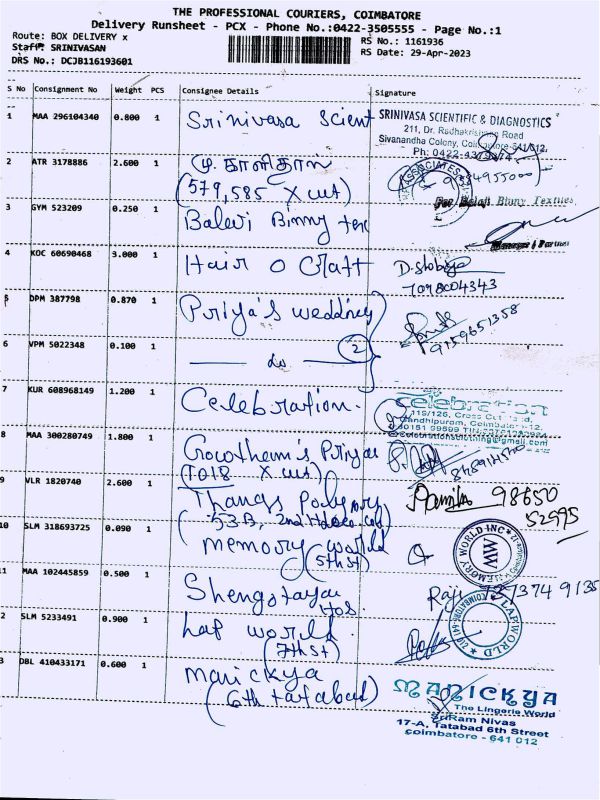 THE PROFESSIONAL COURIERS, COIMBATORE
Delivery Runsheet - PCX - Phone No.:0422-3505555 - Page No.:1
Route: BOX DELIVERY x
RS No.: 1161936
Staff: SRINIVASAN
RS Date: 29-Apr-2023
DRS No.: DCJB116193601
S No Consignment No Weight PCS Consignee Details Signature
1 MAA 296104340 0.800 1 Srinivasa Scient
SRINIVASA SCIENTIFIC & DIAGNOSTICS
211, Dr. Radhakrishnan Road
Sivanandha Colony, Coimbatore-641012.
Ph: 0422-4379474
2 ATR 3178886 2.600 1 மு. காளிதாஸ்
(579,585 X cut)
ASSOCIATES
3 GYM 523209 0.250 1 Balaji Binny tex
For Balaji Binny Textiles
Manager / Partner
4 KOC 60690468 3.000 1 Hair O Craft
7098004343
5 DPM 387798 0.870 1 Priya's wedding
9159651358
6 VPM 5022348 0.100 1 do 2
7 KUR 608968149 1.200 1 Celebration.
celebration
115/126, Cross Cut Road,
Gandhipuram, Coimbatore-12.
8 MAA 300280749 1.800 1 Gowtham's Priya
(1018 X cut)
9 VLR 1820740 2.600 1 Thangs
98650
52995
10 SLM 318693725 0.090 1 memory world
(5th st)
MEMORY WORLD INC
MW
11 MAA 102445859 0.500 1 Hos.
Raji 737374 9135
12 SLM 5233491 0.900 1 Lap world.
(7th st)
LAPWORLD
13 DBL 410433171 0.600 1 Manickya
(6th tatabad)
MANICKYA
The Lingerie World
SriRam Nivas
17-A, Tatabad 6th Street
Coimbatore - 641 012